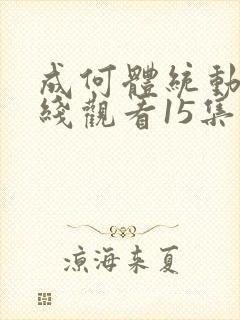 成何體統動
綫觀看15集
涼海来夏